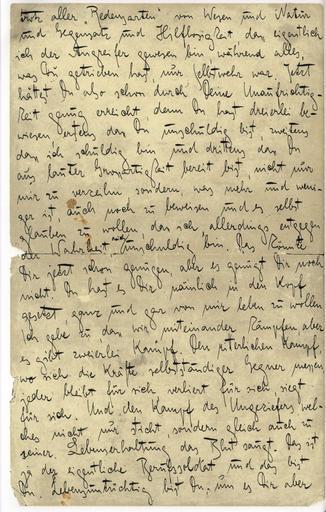 trotz aller "Redensarten" von Wesen und Natur
und Gegensatz und Hilflosigkeit dass eigentlich
ich der Angreifer gewesen bin während alles,
was Du getrieben hast, nur Selbstwehr war. Jetzt
hättest Du also schon durch Deine Unaufrichtig-
keit genug erreicht denn Du hast dreierlei be-
wiesen erstens dass Du unschuldig bist zweitens
dass ich schuldig bin und drittens dass Du
aus lauter Grossartigkeit bereit bist, nicht nur
mir zu verzeihn sondern, was mehr und weni-
ger ist, auch noch zu beweisen und es selbst
glauben zu wollen, dass ich, allerdings entgegen
der Wahrheit, auch unschuldig bin. Das könnte
Dir jetzt schon genügen aber es genügt Dir noch
nicht. Du hast es Dir nämlich in den Kopf
gesetzt ganz und gar von mir leben zu wollen
Ich gebe zu dass wir miteinander kämpfen aber
es gibt zweierlei Kampf. Den ritterlichen Kampf,
wo sich die Kräfte selbständiger Gegner messen
jeder bleibt für sich verliert für sich siegt
für sich. Und den Kampf des Ungeziefers wel-
ches nicht nur sticht, sondern gleich auch zu
seiner Lebenserhaltung das Blut saugt. Das ist
ja der eigentliche Berufssoldat und das bist
Du. Lebensuntüchtig bist Du; um es Dir aber